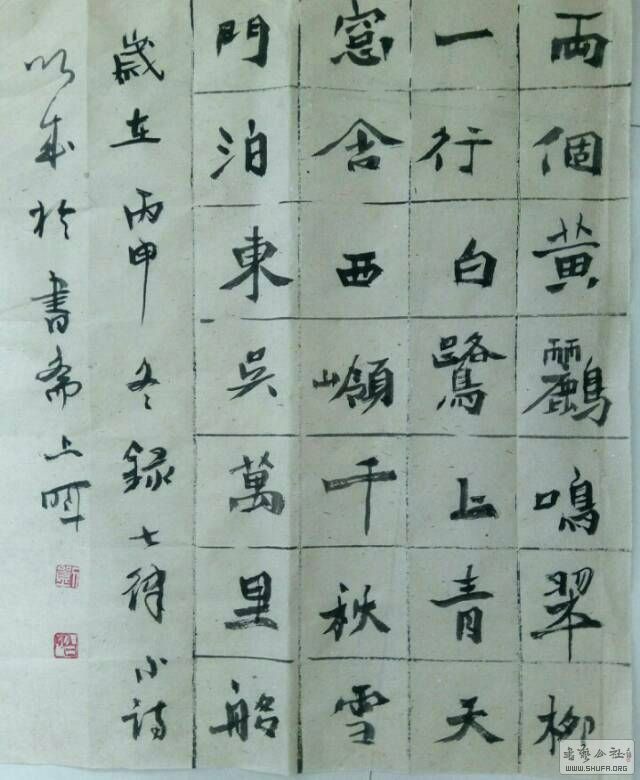 兩個黄鸝鳴翠柳
一行白鷺上青天
窓含西嶺千秋雪
門泊東吳萬里船
歲在丙申冬錄七律小詩
以成於書齋上
書藝公社
WWW.SHUFA.ORG